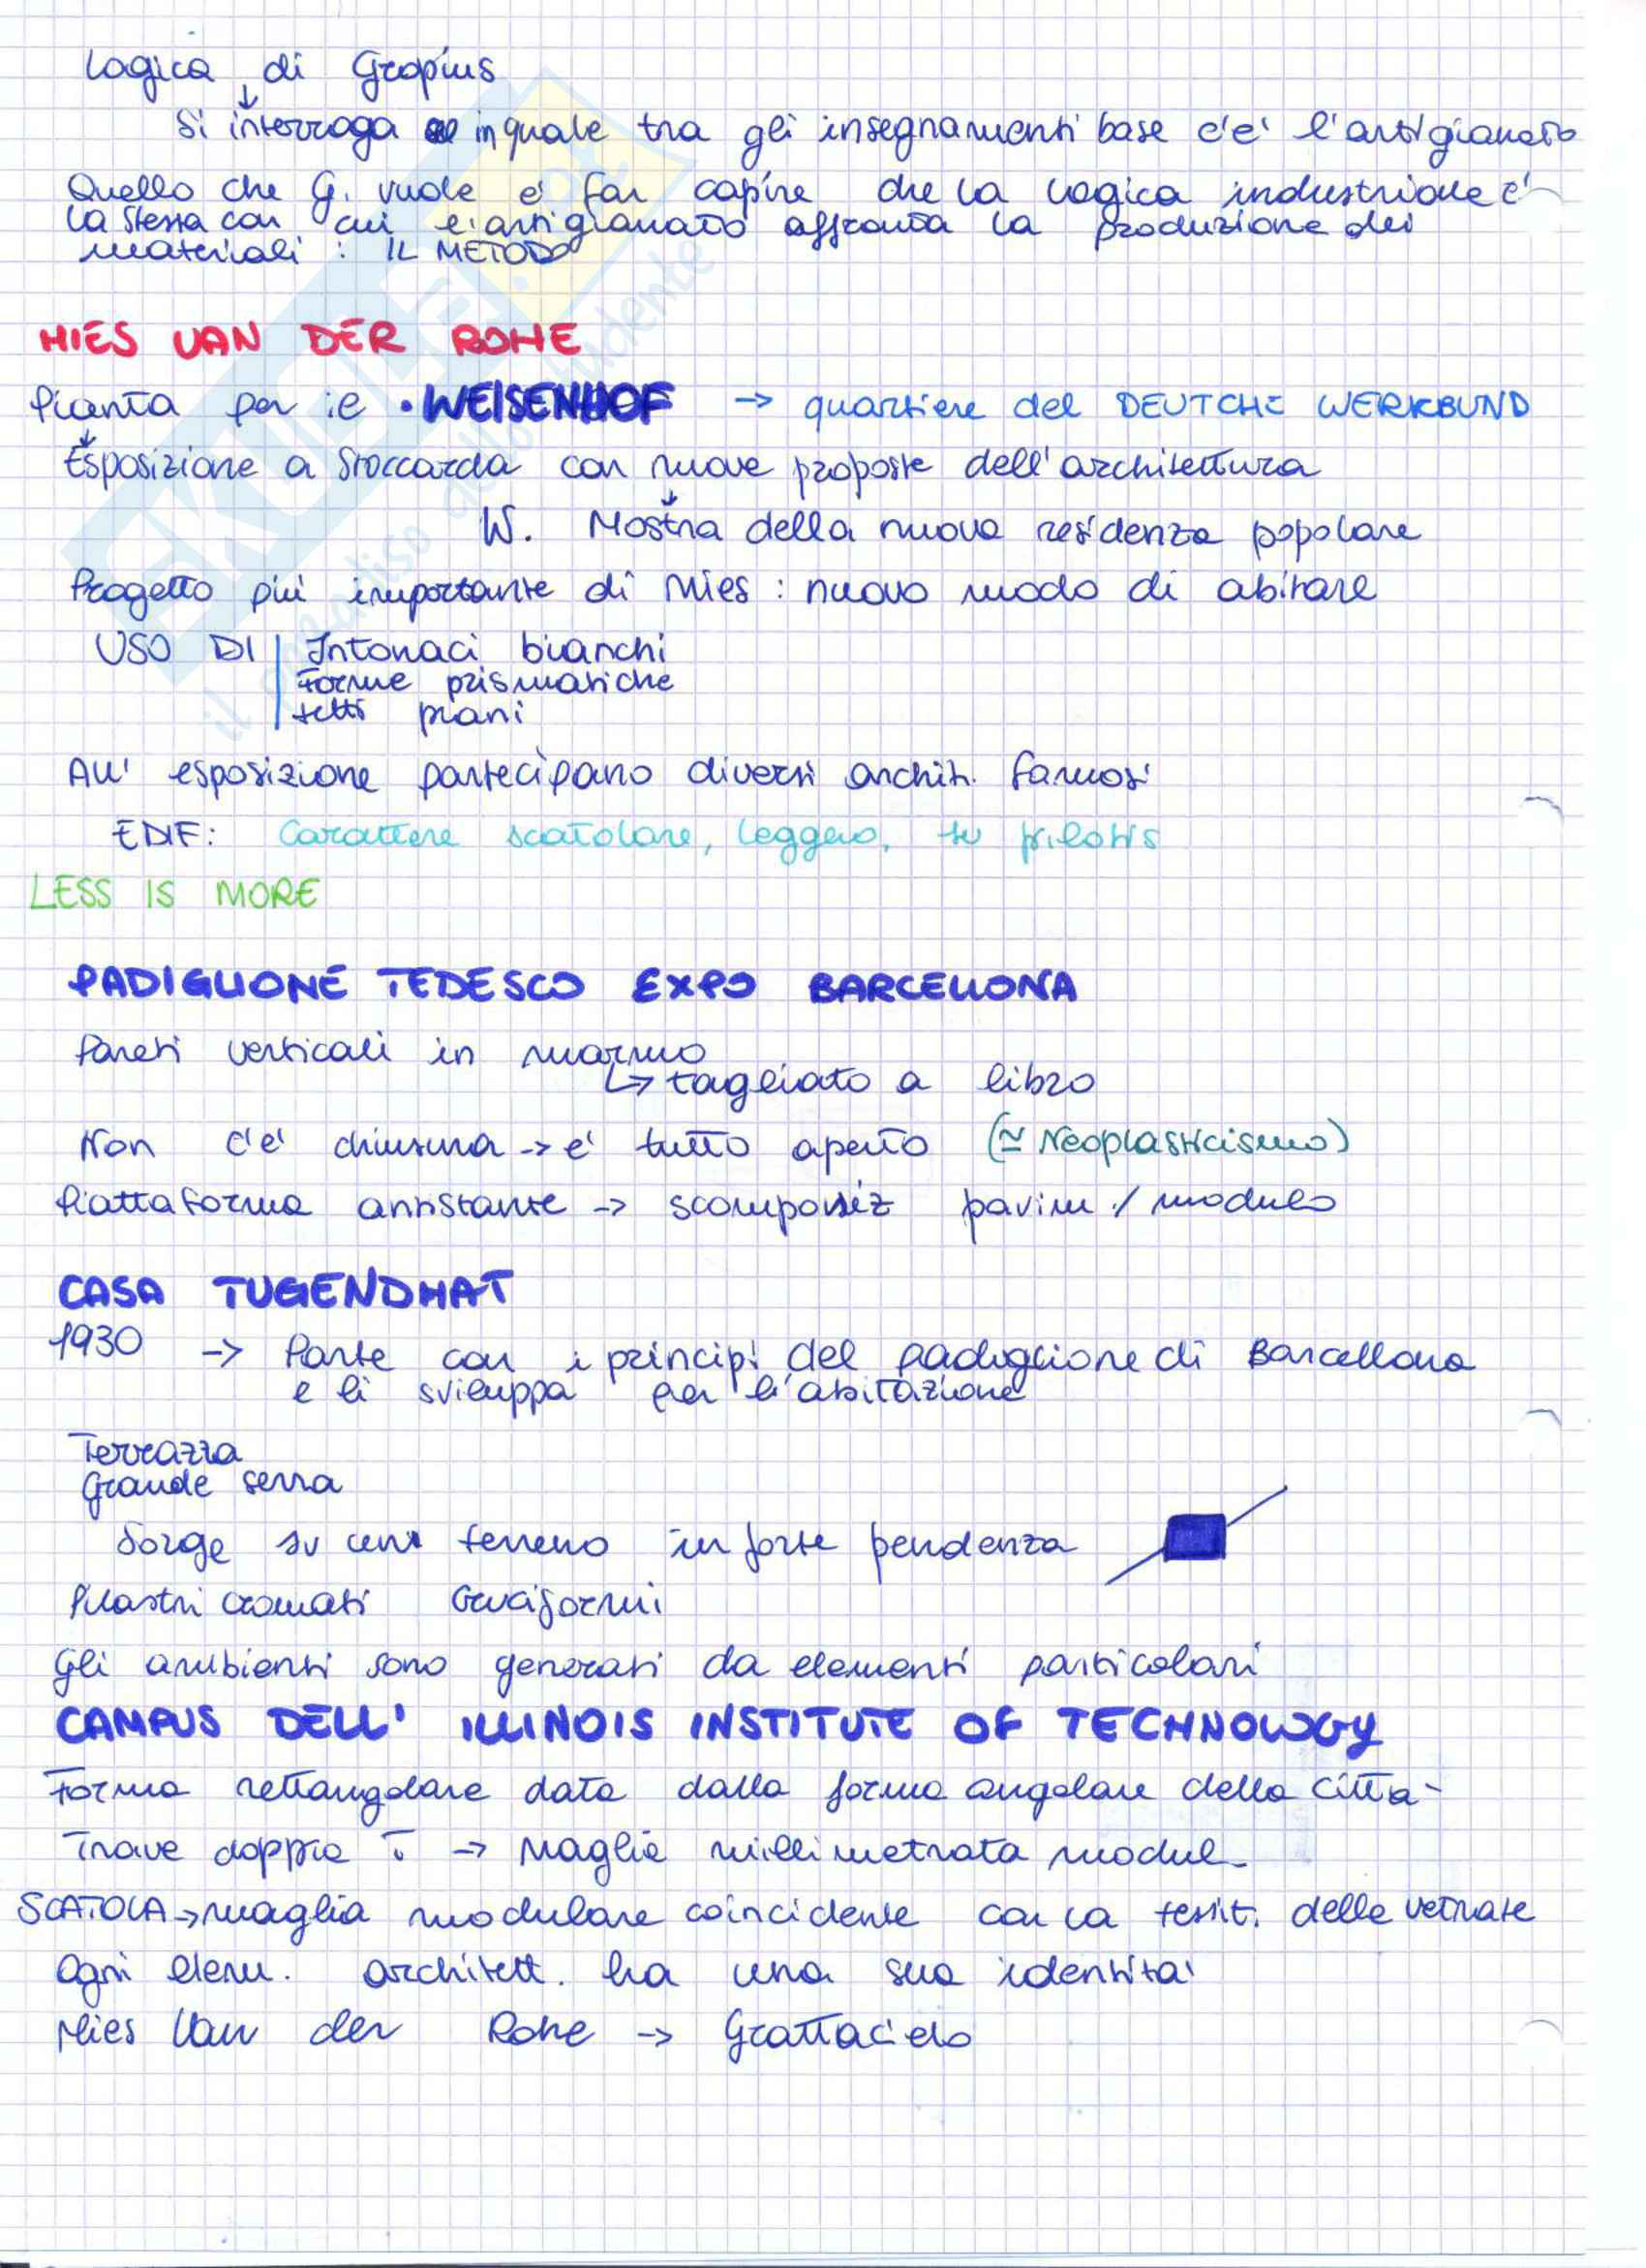 Logica di Gropius
↓
Si interroga in quale tra gli insegnamenti base c'e' l'artigianato
Quello che G. vuole e' far capire che la logica industriale e'
la stessa con cui l'artigianato affronta la produzione dei
materiali : IL METODO
MIES VAN DER ROHE
Pianta per il • WEISENHOF → quartiere del DEUTCHE WERKBUND
↓
Esposizione a Stoccarda con nuove proposte dell'architettura
↓
W. Mostra della nuova residenza popolare
Progetto più importante di Mies : nuovo modo di abitare
USO DI | Intonaci bianchi
Forme prismatiche
tetti piani
All' esposizione partecipano diversi archit. famosi
EDIF: Carattere scatolare, leggero, su pilotis
LESS IS MORE
PADIGLIONE TEDESCO EXPO BARCELLONA
Pareti verticali in marmo
↳ tagliato a libro
Non c'e' chiusura → e' tutto aperto (≃ Neoplasticismo)
Piattaforma antistante → scomposiz pavim / modulo
CASA TUGENDHAT
1930 → Parte con i principi del padiglione di Barcellona
e li sviluppa per l'abitazione
Terrazza
Grande serra
Sorge su un terreno in forte pendenza
Pilastri cromati cruciformi
Gli ambienti sono generati da elementi particolari
CAMPUS DELL' ILLINOIS INSTITUTE OF TECHNOLOGY
Forma rettangolare data dalla forma angolare della città
Trave doppia T → Maglia millimetrata modul.
SCATOLA → maglia modulare coincidente con la tessit. delle vetrate
Ogni elem. architett. ha una sua identita'
Mies Van der Rohe → Grattacielo
SKUOLA
il paradiso dello studente